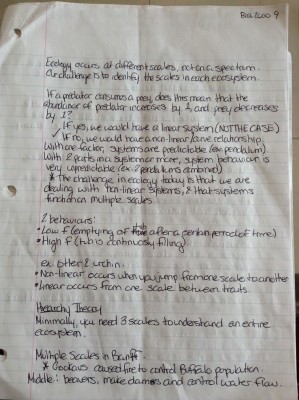 Bio 2600 9
Ecology occurs at different scales, not on a spectrum.
Our challenge is to identify the scales in each ecosystem.
If a predator consumes a prey, does this mean that the
abundance of predator increases by 1, and prey decreases
by 1?
If yes, we would have a linear system (NOT THE CASE)
✓ If no, we would have a non-linear/curve relationship.
With one factor, systems are predictable (ex: pendulum).
With 2 parts in a system or more, system behaviour is
very unpredictable (ex: 2 pendulums combined)
* The challenge in ecology today is that we are
dealing with non-linear systems, & that systems
function on multiple scales.
2 behaviours:
• Low f (emptying of after a certain period of time)
• High f (tub is continuously filling).
ex: Otter & urchin.
• Non-linear occurs when you jump from one scale to another
• Linear occurs from one scale between traits.
Hierarchy Theory
Minimally, you need 3 scales to understand an entire
ecosystem.
Multiple Scales in Banff
caused fire to control Buffalo population
Middle: beavers, make dams and control water flow.